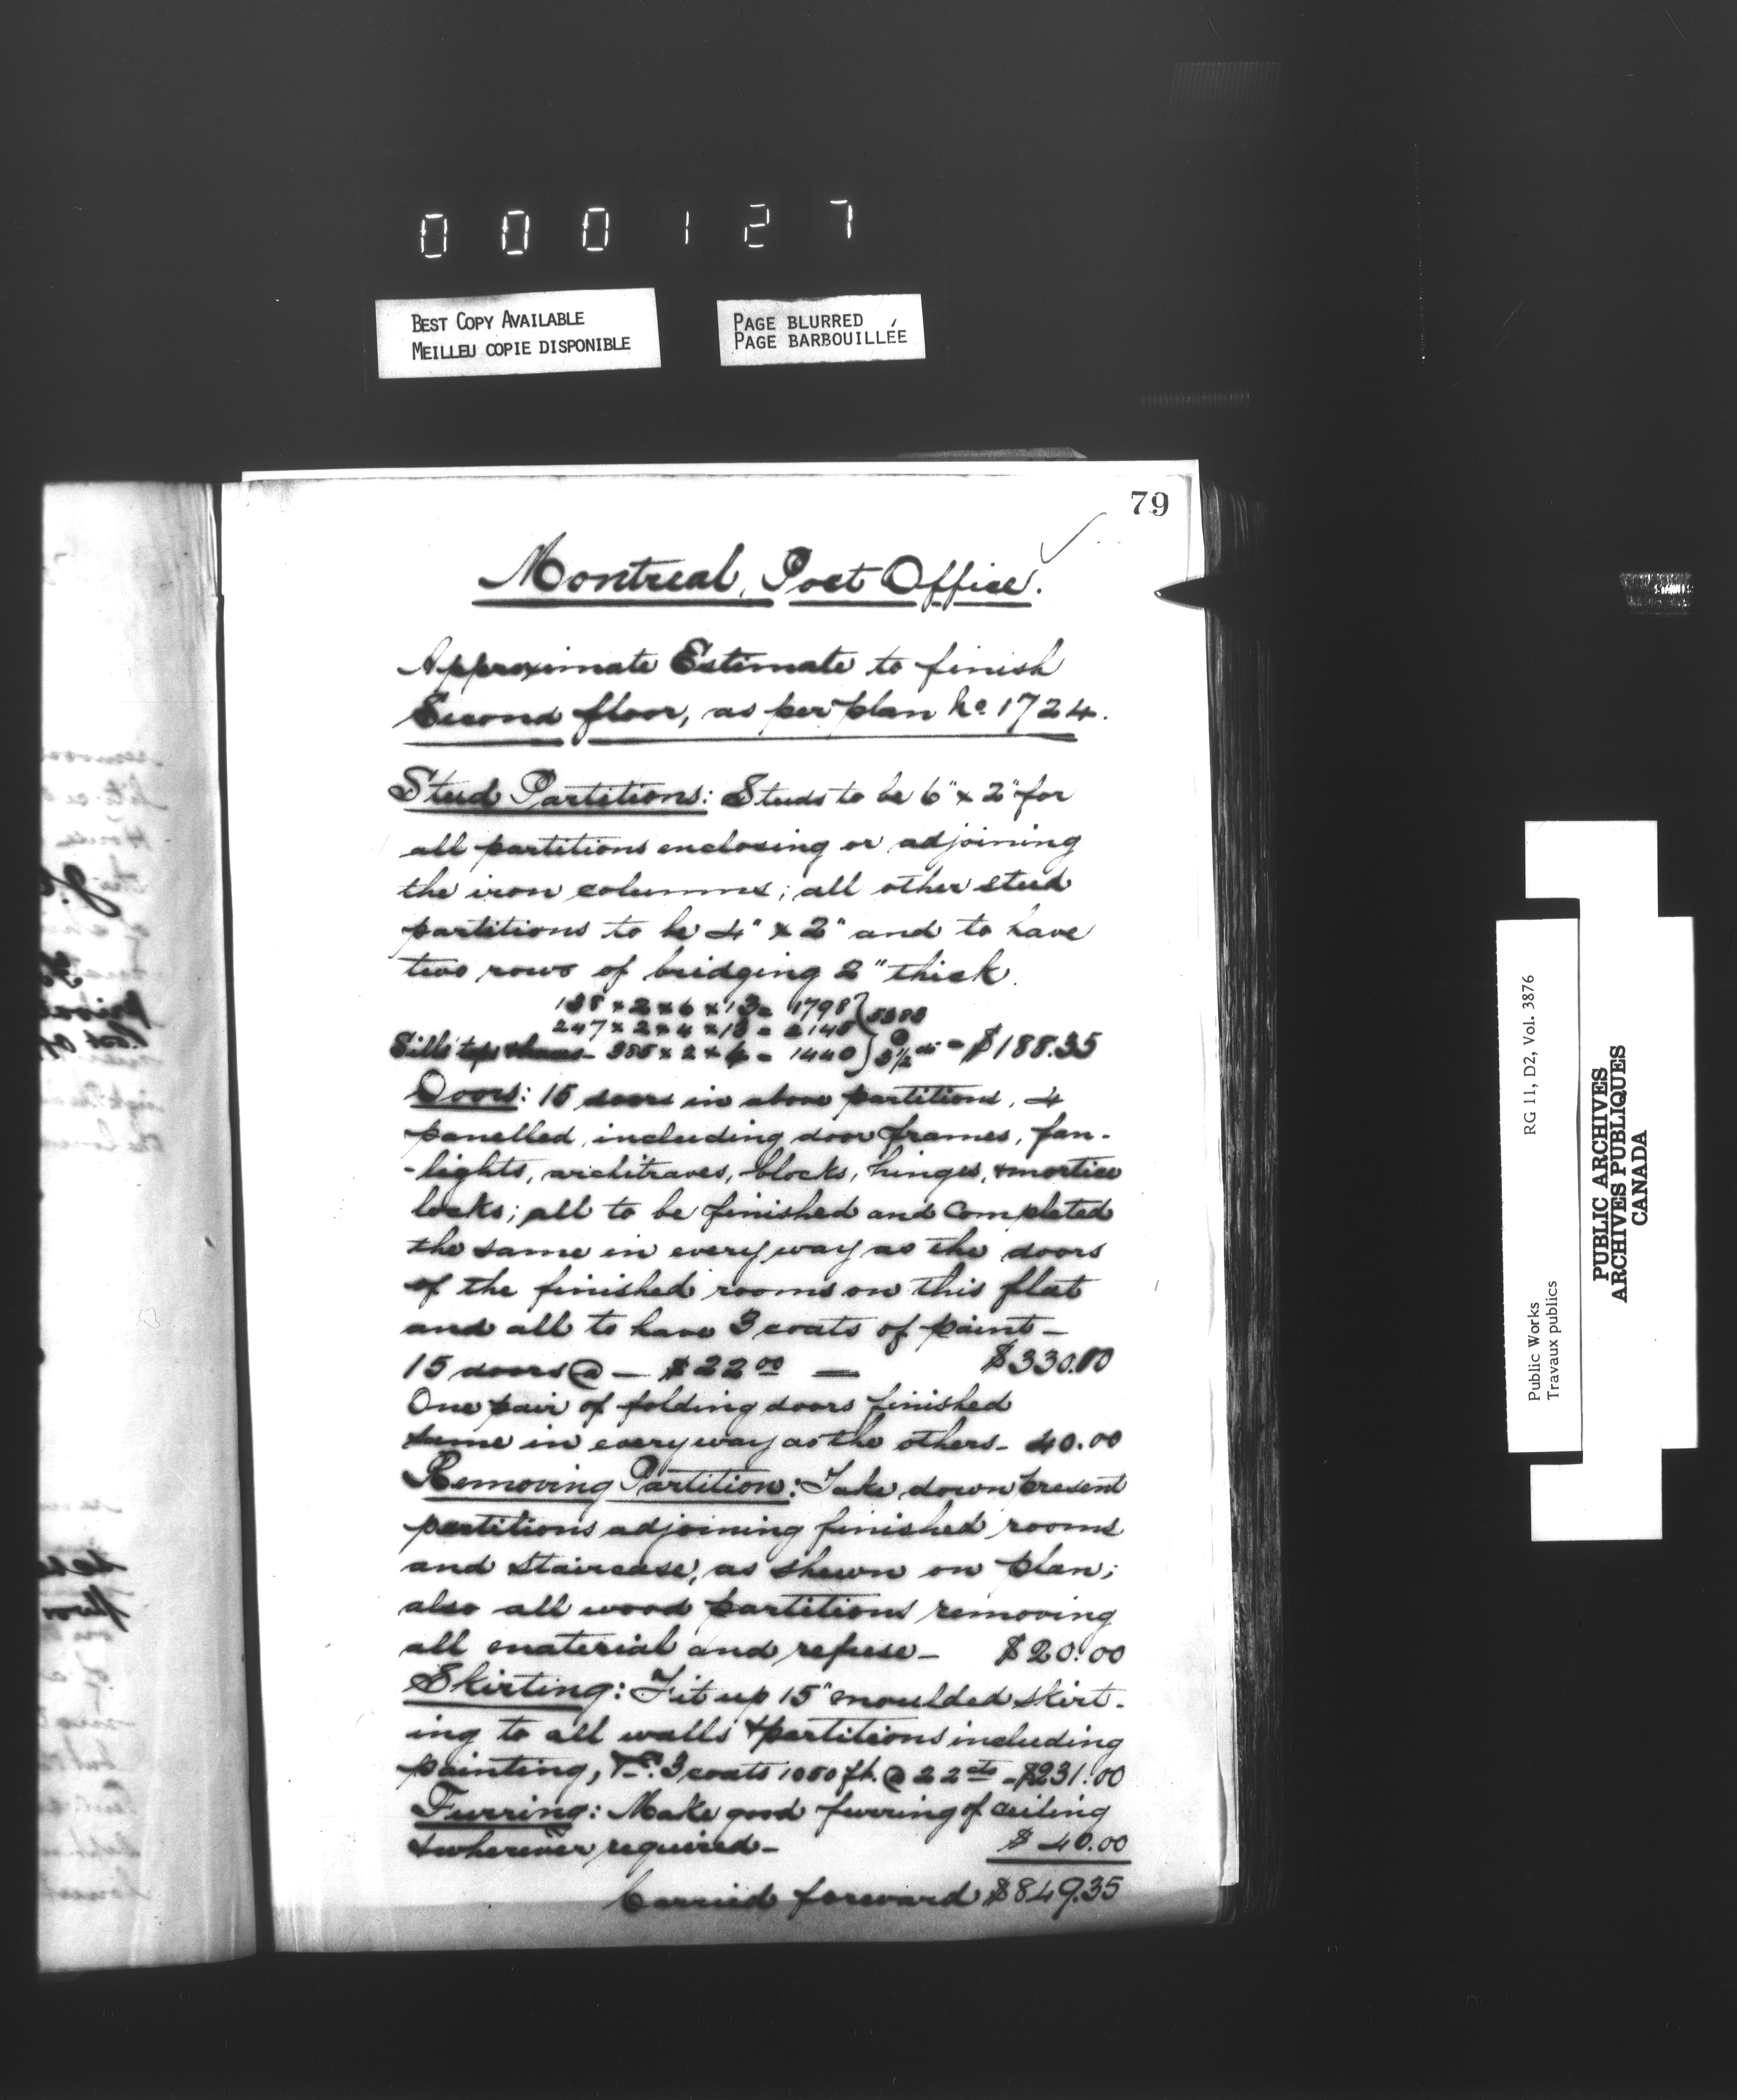 000127
BEST COPY AVAILABLE
MEILLEU COPIE DISPONIBLE
PAGE BLURRED
PAGE BARBOUILLÉE
79
Montreal, Post Office.
Approximate Estimate to finish
Second floor, as per plan No 1724.
Stud Partitions: Studs to be 6" x 2" for
all partitions enclosing or adjoining
the iron columns; all other stud
partitions to be 4" x 2" and to have
two rows of bridging 2" thick.
138 x 2 x 6 x 13 = 1798
247 x 2 x 4 x 13 = 2145 } 5383
Sills tops 385 x 2 x = 1440 } @ 3½ = $188.35
Doors: 15 doors in above partitions, 4
panelled, including door frames, fan-
-lights, architraves, blocks, hinges, & mortice
locks; all to be finished and completed
the same in every way as the doors
of the finished rooms on this flat
and all to have 3 coats of paint-
15 doors @ — $22.00 — $330.00
One pair of folding doors finished
same in every way as the others - 40.00
Removing Partition: Take down present
partitions adjoining finished rooms
and staircase, as shewn on plan;
also all wood partitions removing
all material and refuse - $20.00
Skirting: Fit up 15" moulded skirt-
ing to all walls & partitions including
painting, 3 coats 1050 ft. @ 22 cts - $231.00
Furring: Make good furring of ceiling
& wherever required - $40.00
Carried forward $849.35
RG 11, D2, Vol. 3876
Public Works
Travaux publics
PUBLIC ARCHIVES
ARCHIVES PUBLIQUES
CANADA